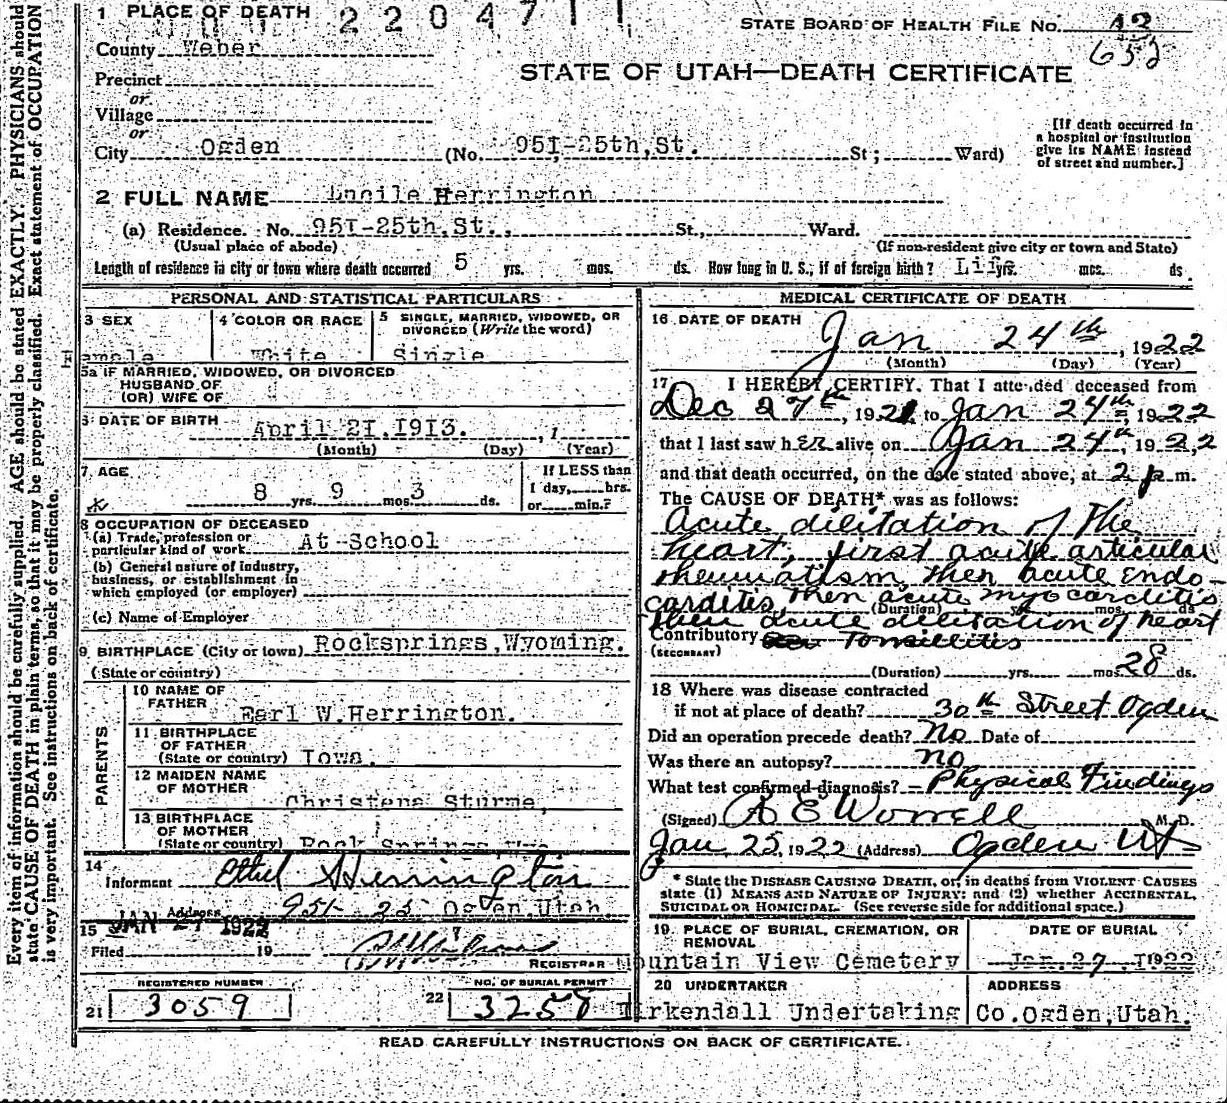 Every item of information should be carefully supplied. AGE should be stated EXACTLY. PHYSICIANS should
state CAUSE OF DEATH in plain terms, so that it may be properly classified. Exact statement of OCCUPATION
is very important. See instructions on back of certificate.
1 PLACE OF DEATH
220471
STATE BOARD OF HEALTH FILE NO. 43
652
County Weber
STATE OF UTAH—DEATH CERTIFICATE
Precinct
or
Village
or
City Ogden (No. 951-25th,St. St; Ward)
[If death occurred in
a hospital or institution
give its NAME instead
of street and number.]
2 FULL NAME Lucile Herrington
(a) Residence. No. 951-25th.St., St., Ward.
(Usual place of abode) (If non-resident give city or town and State)
Length of residence in city or town where death occurred 5 yrs. mos. ds. How long in U. S., if of foreign birth? Life yrs. mos. ds.
PERSONAL AND STATISTICAL PARTICULARS
3 SEX 4 COLOR OR RACE 5 SINGLE, MARRIED, WIDOWED, OR
DIVORCED (Write the word)
White Single
5a IF MARRIED, WIDOWED, OR DIVORCED
HUSBAND OF
(OR) WIFE OF
6 DATE OF BIRTH April 21.1913. , 1
(Month) (Day) (Year)
7 AGE 8 yrs. 9 mos. 3 ds.
If LESS than
1 day, hrs.
or min.?
8 OCCUPATION OF DECEASED
(a) Trade, profession or
particular kind of work At-School
(b) General nature of industry,
business, or establishment in
which employed (or employer)
(c) Name of Employer
9 BIRTHPLACE (City or town) Rocksprings,Wyoming.
(State or country)
PARENTS
10 NAME OF
FATHER Earl W.Herrington.
11 BIRTHPLACE
OF FATHER
(State or country) Iowa.
12 MAIDEN NAME
OF MOTHER Christena Sturme,
13 BIRTHPLACE
OF MOTHER
(State or country) Rock Springs
14
Informant Ethel Herrington
Address 951-25 Ogden,Utah.
15 JAN 27 1922
Filed 19
REGISTRAR
REGISTERED NUMBER
21 3059
NO. OF BURIAL PERMIT
22 3258
MEDICAL CERTIFICATE OF DEATH
16 DATE OF DEATH
Jan 24th, 1922
(Month) (Day) (Year)
17 I HEREBY CERTIFY. That I attended deceased from
Dec 27th, 1921 to Jan 24th, 1922
that I last saw hER alive on Jan 24th, 1922,
and that death occurred, on the date stated above, at 2 p m.
The CAUSE OF DEATH* was as follows:
Acute dilitation of the
heart, first acute articular
rheumatism, then acute Endo-
carditis, then acute myocarditis
(Duration) yrs. mos. ds
then acute dilitation of heart
Contributory Tonsillitis
(SECONDARY)
(Duration) yrs. mos. 28 ds.
18 Where was disease contracted
if not at place of death? 30th Street Ogden
Did an operation precede death? No Date of
Was there an autopsy? no
What test confirmed diagnosis? Physical Findings
(Signed) A E Worrell M. D.
Jan 25, 1922 (Address) Ogden Ut
* State the DISEASE CAUSING DEATH, or, in deaths from VIOLENT CAUSES
state (1) MEANS AND NATURE OF INJURY; and (2) whether ACCIDENTAL,
SUICIDAL or HOMICIDAL. (See reverse side for additional space.)
19. PLACE OF BURIAL, CREMATION, OR
REMOVAL
Mountain View Cemetery
DATE OF BURIAL
Jan.27, 1922
20 UNDERTAKER ADDRESS
Kirkendall Undertaking Co.Ogden,Utah.
READ CAREFULLY INSTRUCTIONS ON BACK OF CERTIFICATE.